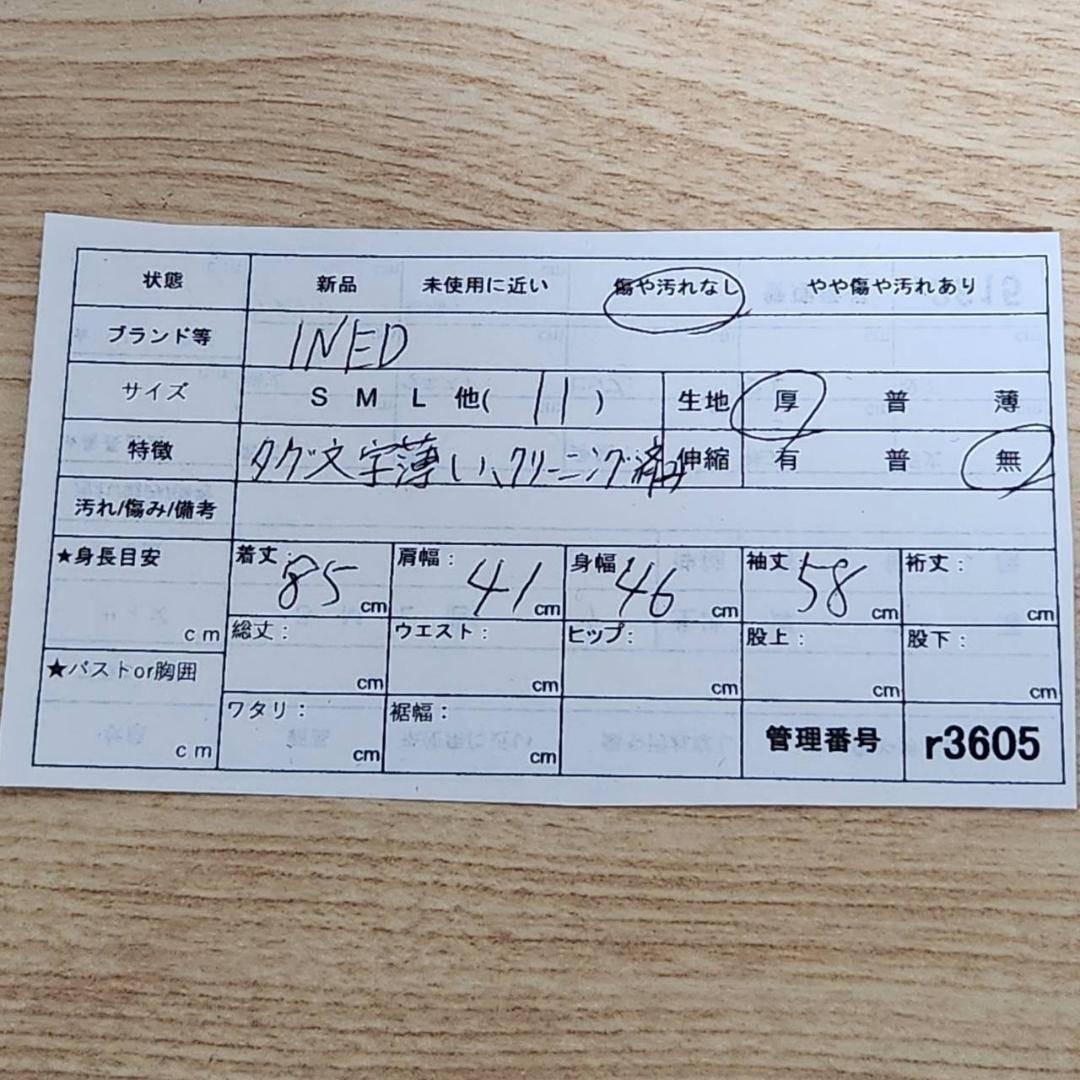 状態 新品 未使用に近い 傷や汚れなし やや傷や汚れあり
ブランド等 INED
サイズ S M L 他( 11 ) 生地 厚 普 薄
特徴 タグ文字薄い、クリーニング済み 伸縮 有 普 無
汚れ/傷み/備考
★身長目安 cm
着丈: 85 cm 肩幅: 41 cm 身幅 46 cm 袖丈: 58 cm 裄丈: cm
総丈: cm ウエスト: cm ヒップ: cm 股上: cm 股下: cm
★バストor胸囲 cm
ワタリ: cm 裾幅: cm 管理番号 r3605